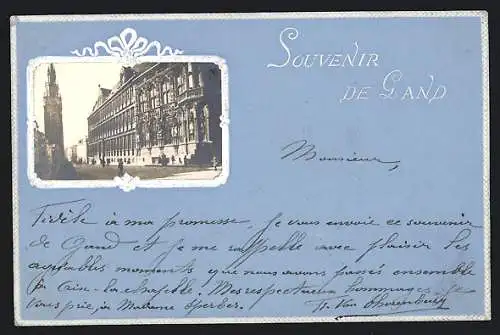 Souvenir
de Gand
Monsieur,
Fidèle à ma promesse, je vous envoie ce souvenir
de Gand et je me rappelle avec plaisir les
agréables moments que nous avons passés ensemble
à Aix-la-Chapelle. Mes respectueux hommages, je
vous prie, à Madame